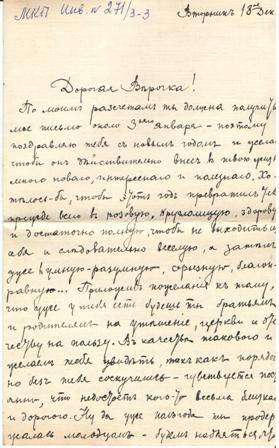 МКП Инв. № 271/3-3
Вторникъ 18го Дек.
Дорогая Вѣрочка!
По моимъ разсчетамъ ты должна получить
мое письмо около 3его января – поэтому
поздравляю тебя съ новымъ годомъ и желаю
чтобы онъ дѣйствительно внесъ въ твою душу
много новаго, интереснаго и полезнаго. Хо-
тѣлось-бы, чтобы этотъ годъ превратилъ тебя
прежде всего въ розовую, круглощекую, здоровую
и достаточно полную, чтобы не выходить изъ
себя и слѣдовательно веселую, а затѣмъ
уже въ умную-разумную, серьезную, благон-
равную...
что уже у меня есть будешь ты братьямъ
и родителямъ на утѣшеніе, церкви и оте-
честву на пользу. Въ качествѣ таковаго и
желаемъ тебя увидѣть, такъ какъ порядк
но безъ тебя соскучились – чувствуется пос-
янно, что недостаетъ кого-то весьма близкаго
и дорогого. Ну да уже полъ года ты проде-
жалась молодцомъ – будемъ надѣяться, ч